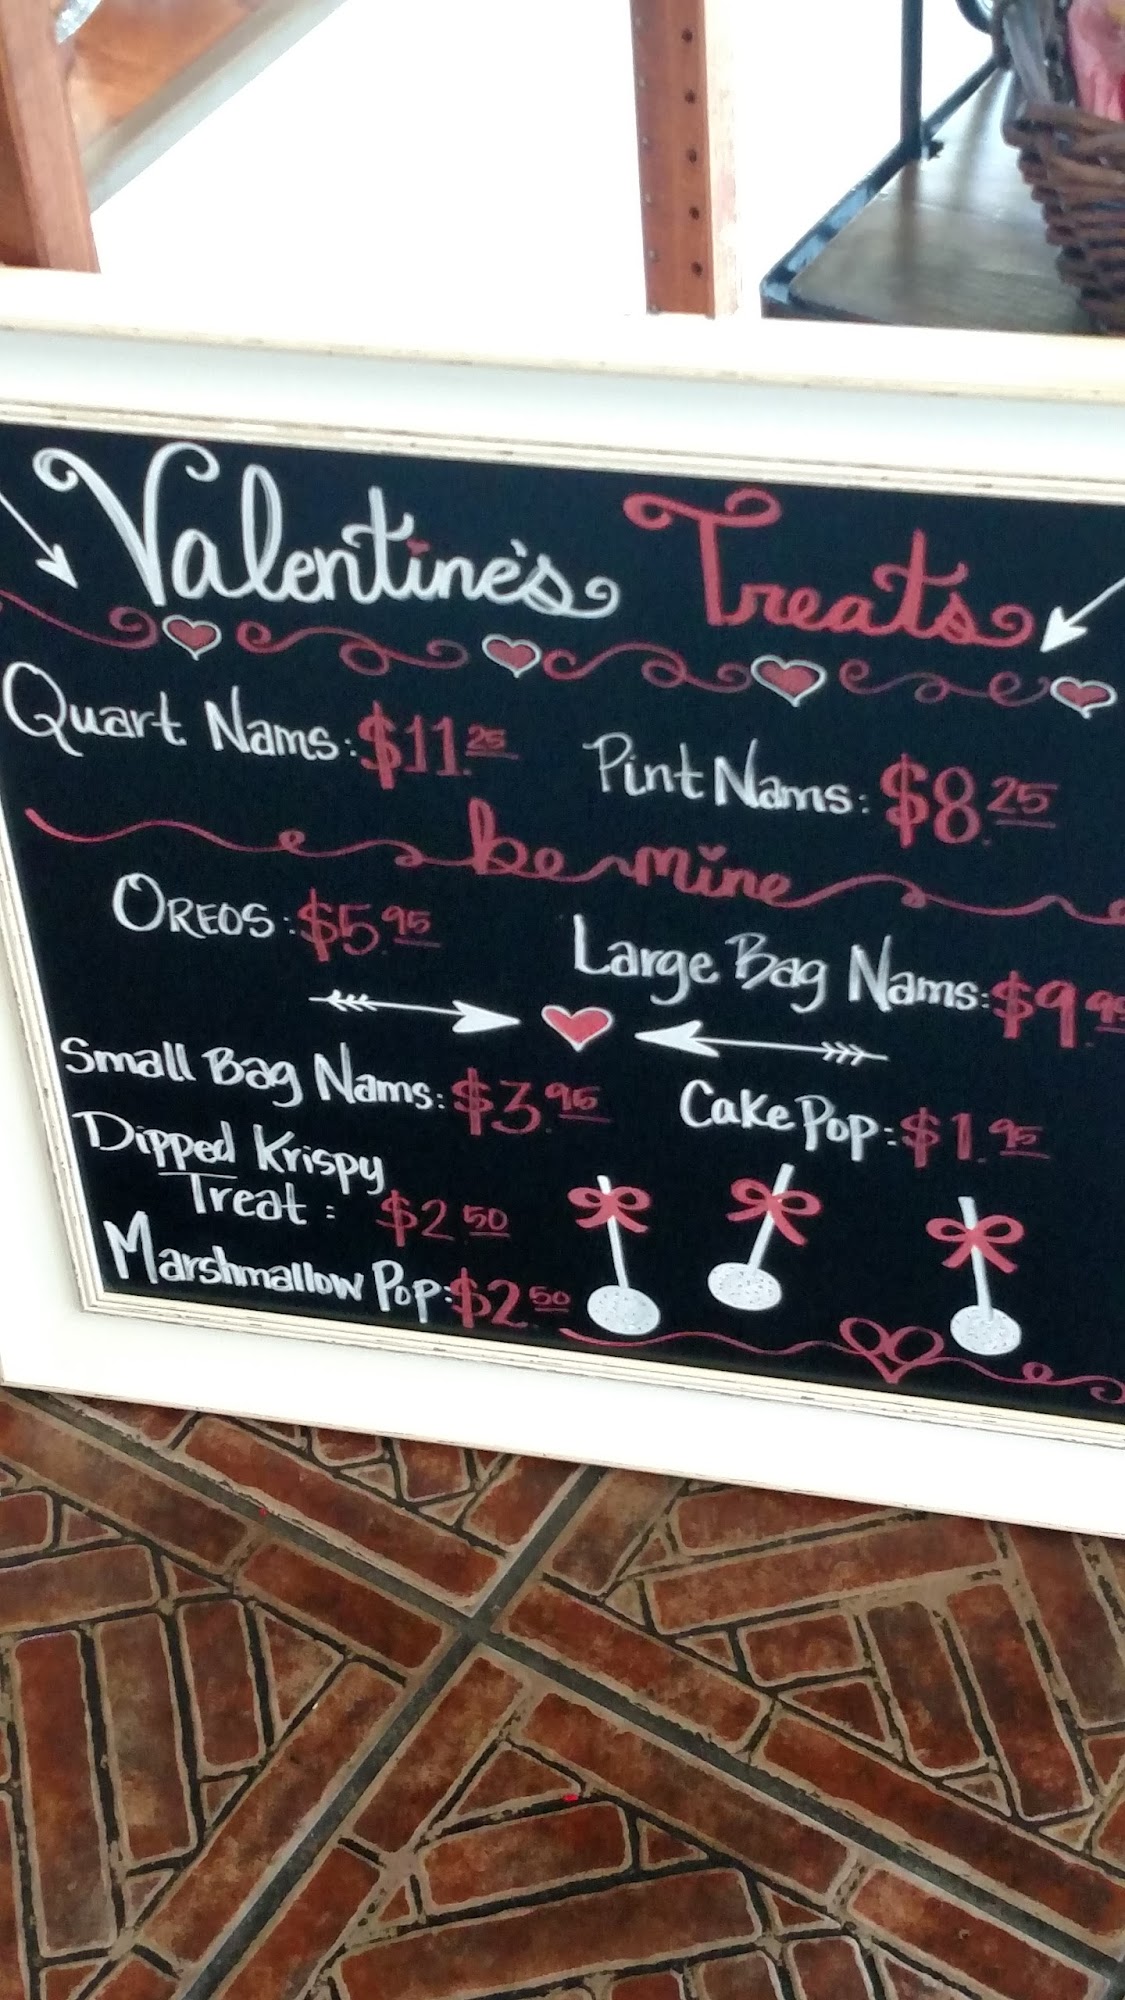 Valentine's Treats
Quart Nams: $11.25
Pint Nams: $8.25
be mine
OREOS: $5.95
Large Bag Nams: $9.95
Small Bag Nams: $3.95
Cake Pop: $1.95
Dipped Krispy
Treat: $2.50
Marshmallow Pop: $2.50